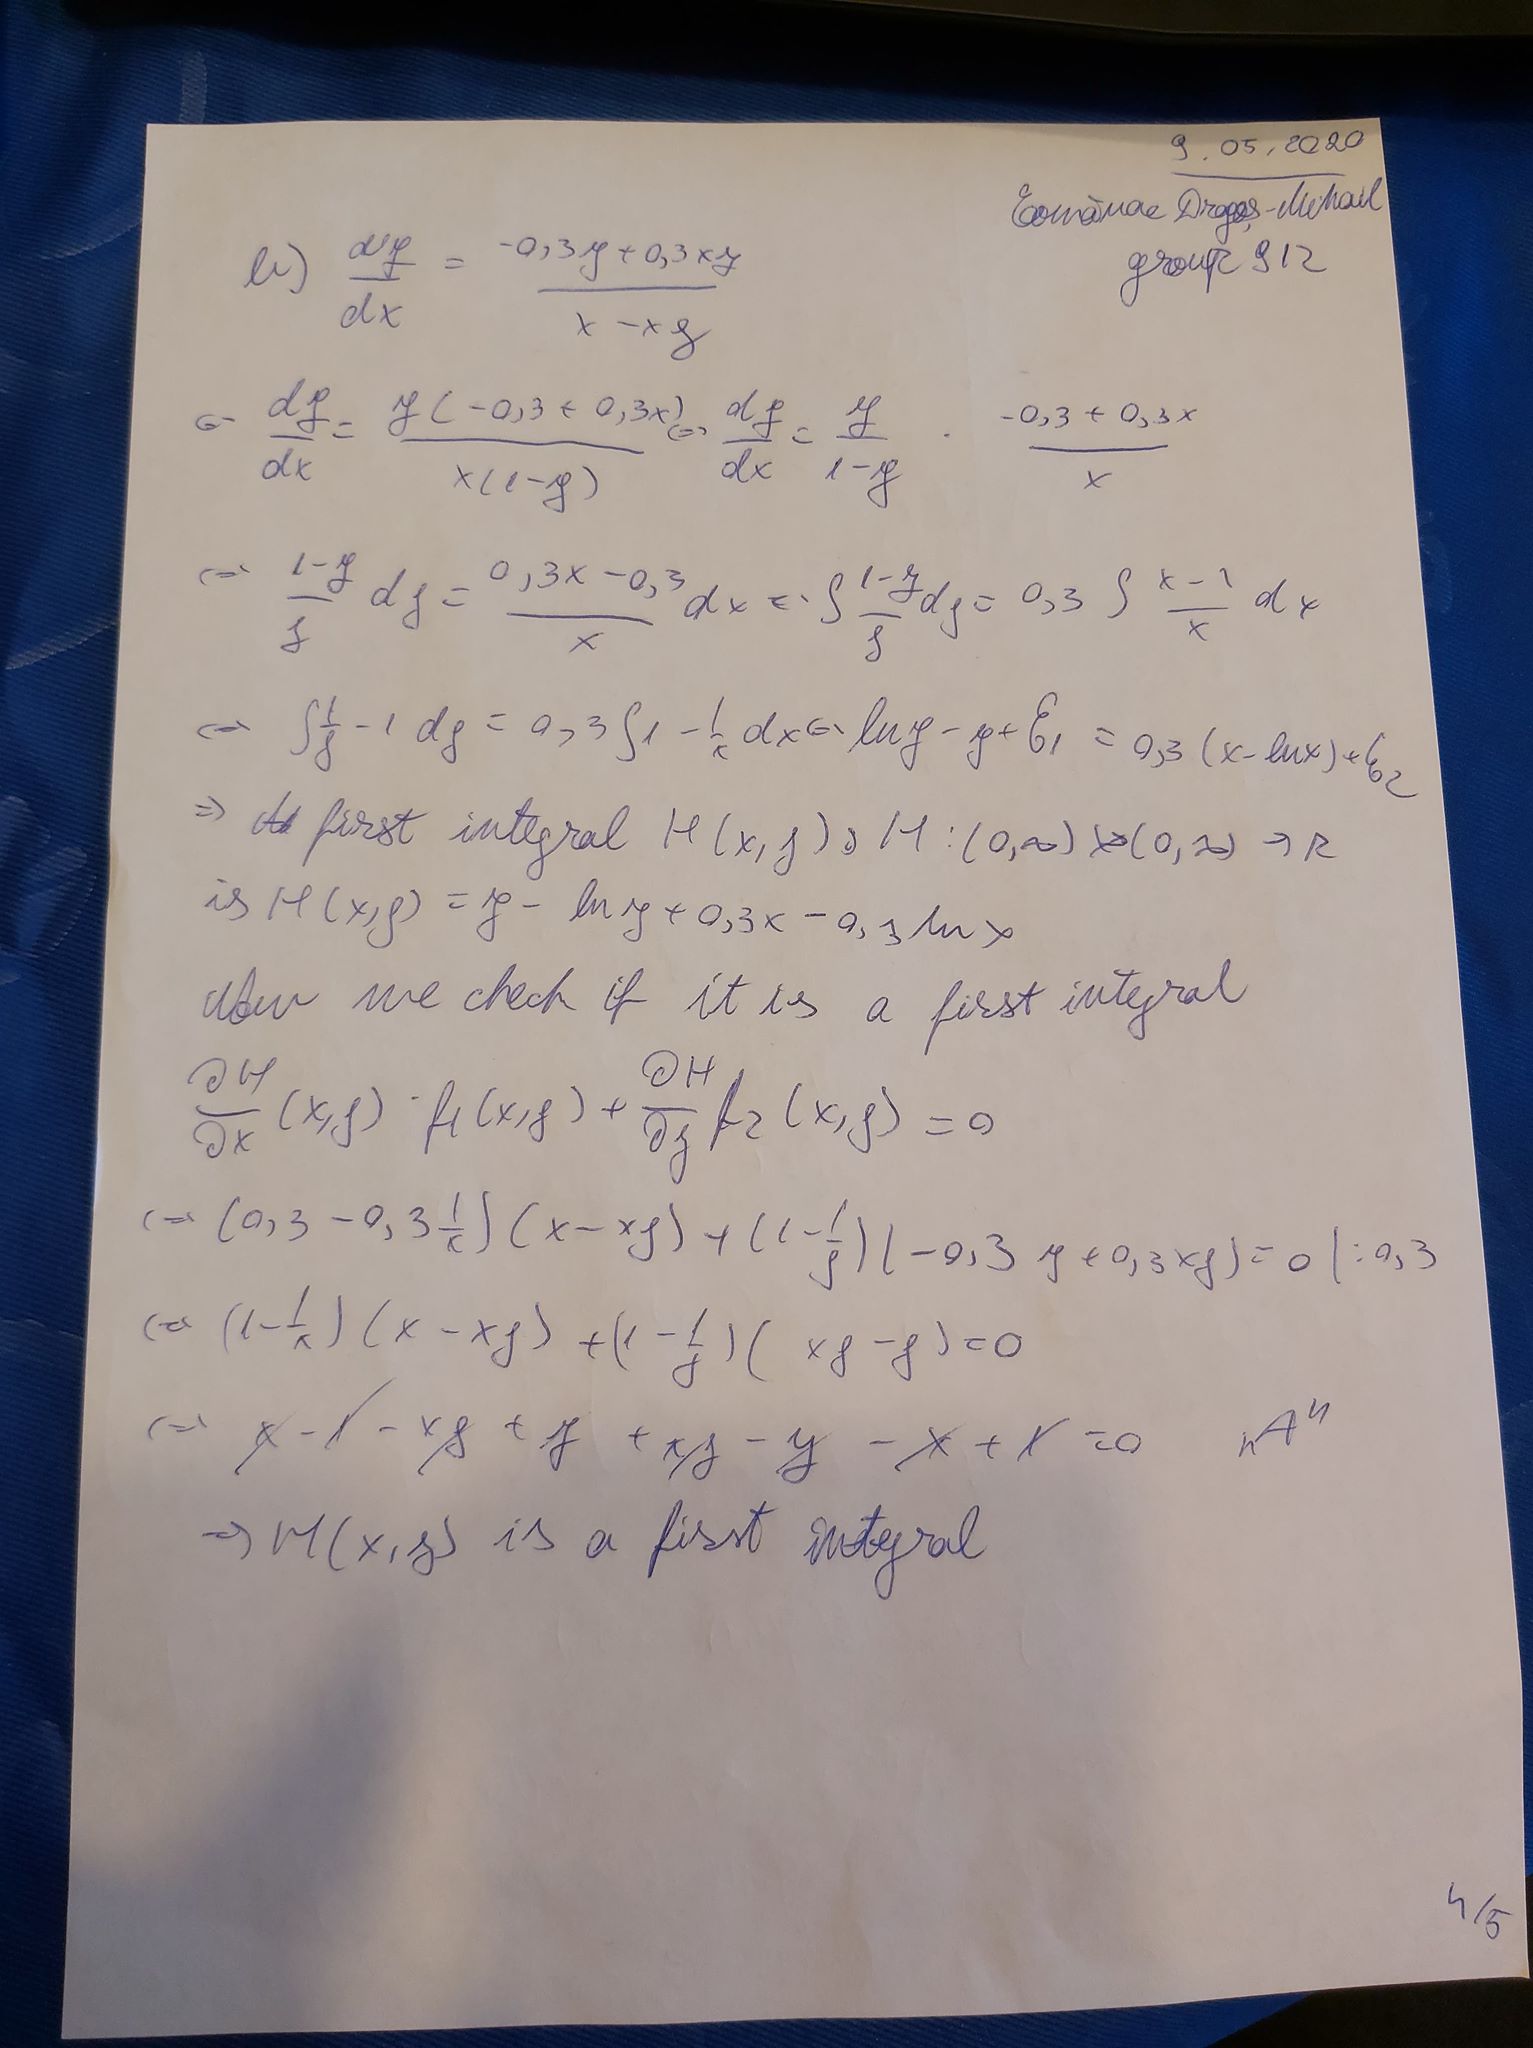 9.05.2020
Dragoș-Mihail
group 912
b) dy/dx = (-0,3y + 0,3xy)/(x - xy)
⇔ dy/dx = y(-0,3 + 0,3x)/(x(1-y)) ⇔ dy/dx = y/(1-y) · (-0,3 + 0,3x)/x
⇔ (1-y)/y dy = (0,3x - 0,3)/x dx ⇔ ∫ (1-y)/y dy = 0,3 ∫ (x-1)/x dx
⇔ ∫ 1/y - 1 dy = 0,3 ∫ 1 - 1/x dx ⇔ ln y - y + C1 = 0,3 (x - ln x) + C2
⇒ A first integral H(x,y), H : (0,∞) × (0,∞) → R
is H(x,y) = y - ln y + 0,3x - 0,3 ln x
Now we check if it is a first integral
∂H/∂x (x,y) · f1(x,y) + ∂H/∂y f2(x,y) = 0
⇔ (0,3 - 0,3 1/x)(x - xy) + (1 - 1/y)(-0,3 y + 0,3xy) = 0 | : 0,3
⇔ (1 - 1/x)(x - xy) + (1 - 1/y)(xy - y) = 0
⇔ x - 1 - xy + y + xy - y - x + 1 = 0 „A"
⇒ H(x,y) is a first integral
4/5